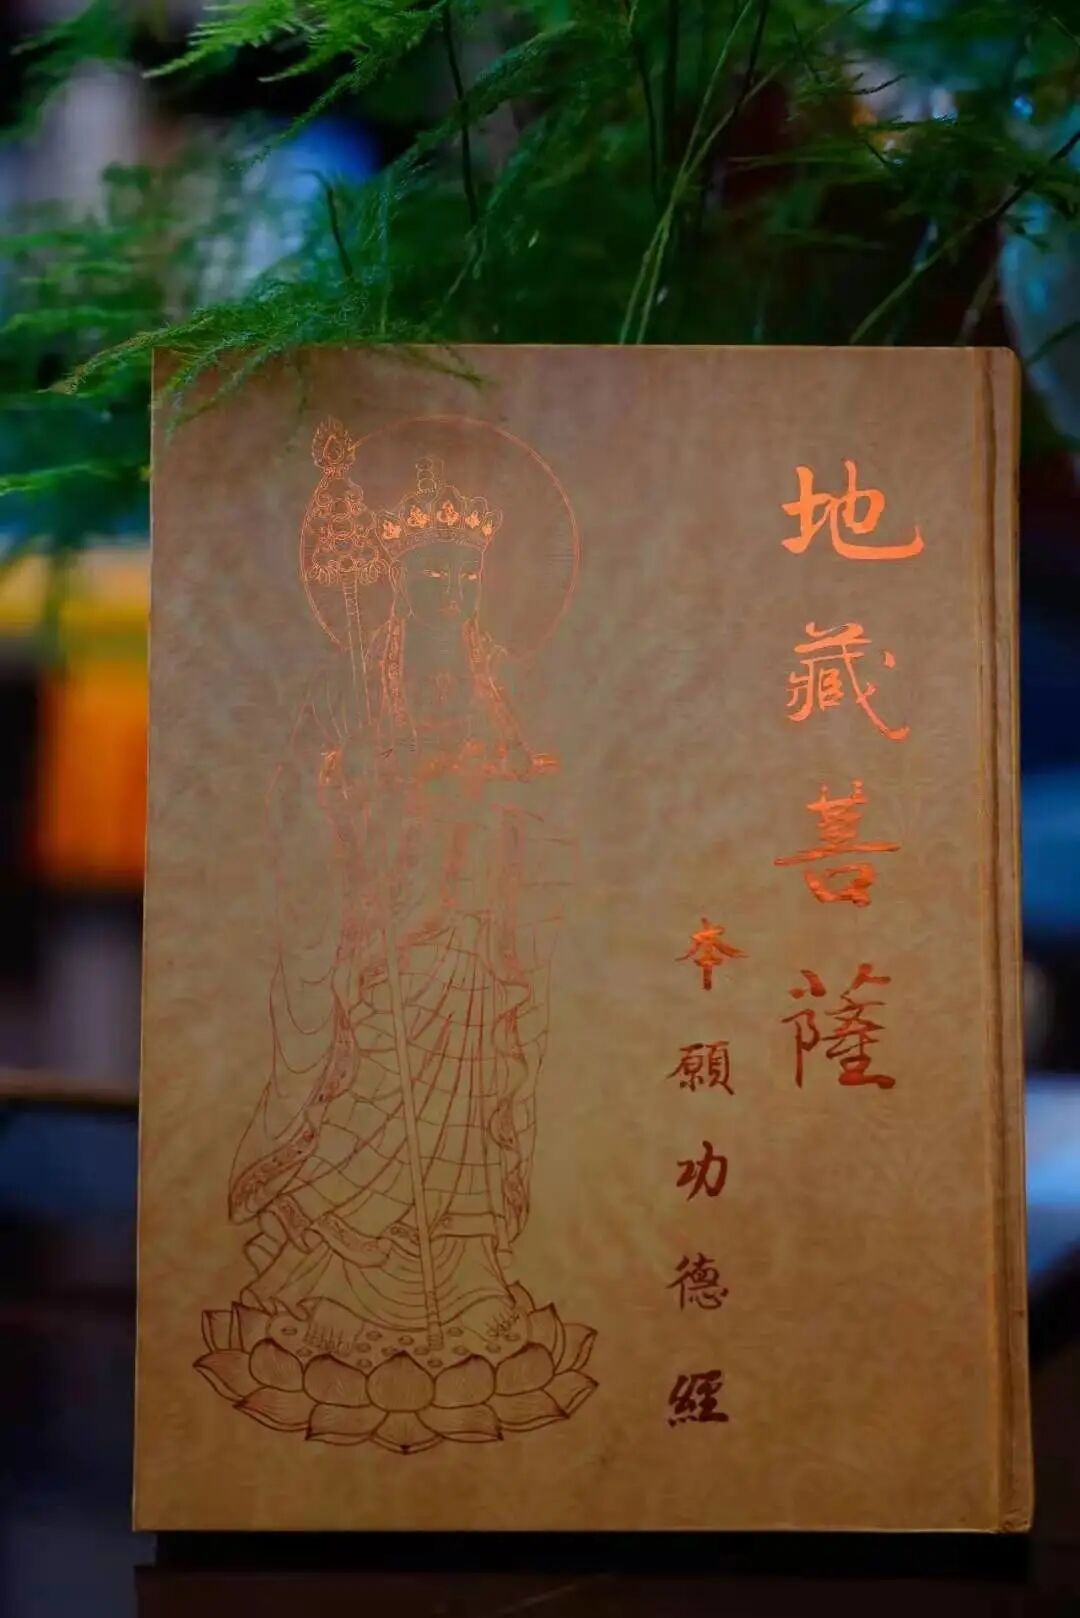 地藏菩薩
本願功德經